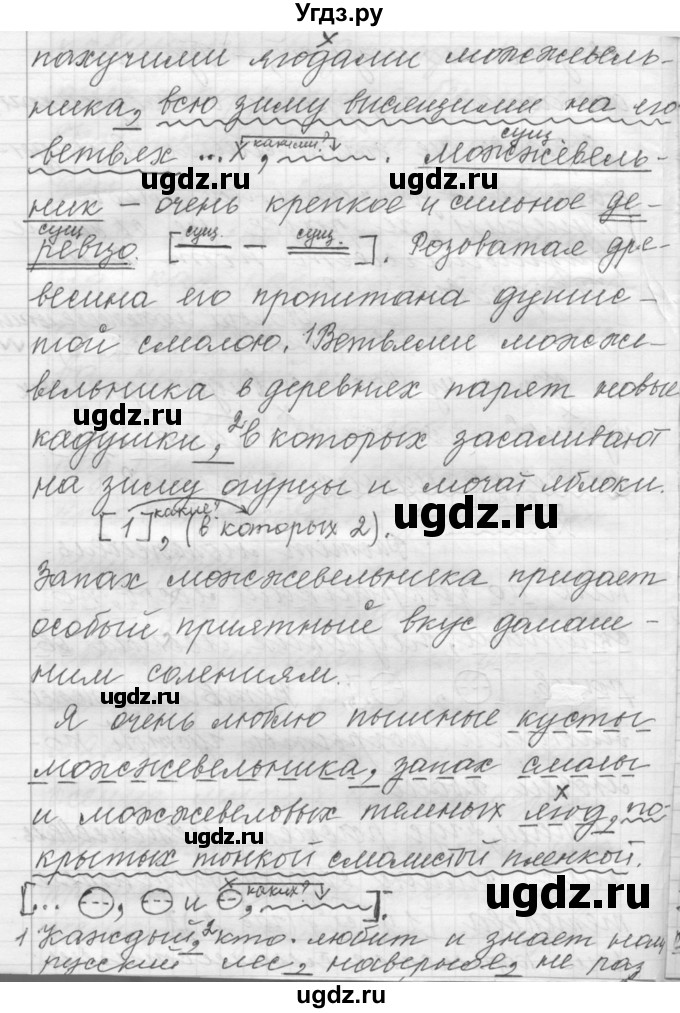 Угдз.ру
пахучими ягодами можжевель-
ника, всю зиму висящими на его
ветвях ... х, какими? . Можжевель- сущ.
ugdz.ru
ugdz.ru
ник – очень крепкое и сильное де-
ревцо. сущ. [сущ. – сущ.]. Розоватая дре-
весина его пропитана души-
той смолою. ¹Ветвями можже-
вельника в деревнях парят новые
ugdz.ru
кадушки, ²в которых засаливают
на зиму огурцы и мочат яблоки.
ugdz.ru
[1], какие? (в которых 2).
Запах можжевельника придает
особый, приятный вкус домаш-
ним солениям.
ugdz.ru
Я очень люблю пышные кусты
можжевельника, запах смолы
и можжевеловых темных ягод, по-
ugdz.ru
крытых тонкой смолистой пленкой.
[... , и х, каких? ].
ugdz.ru
1 Каждый, ²кто любит и знает наш
русский лес, наверное, не раз
ugdz.ru